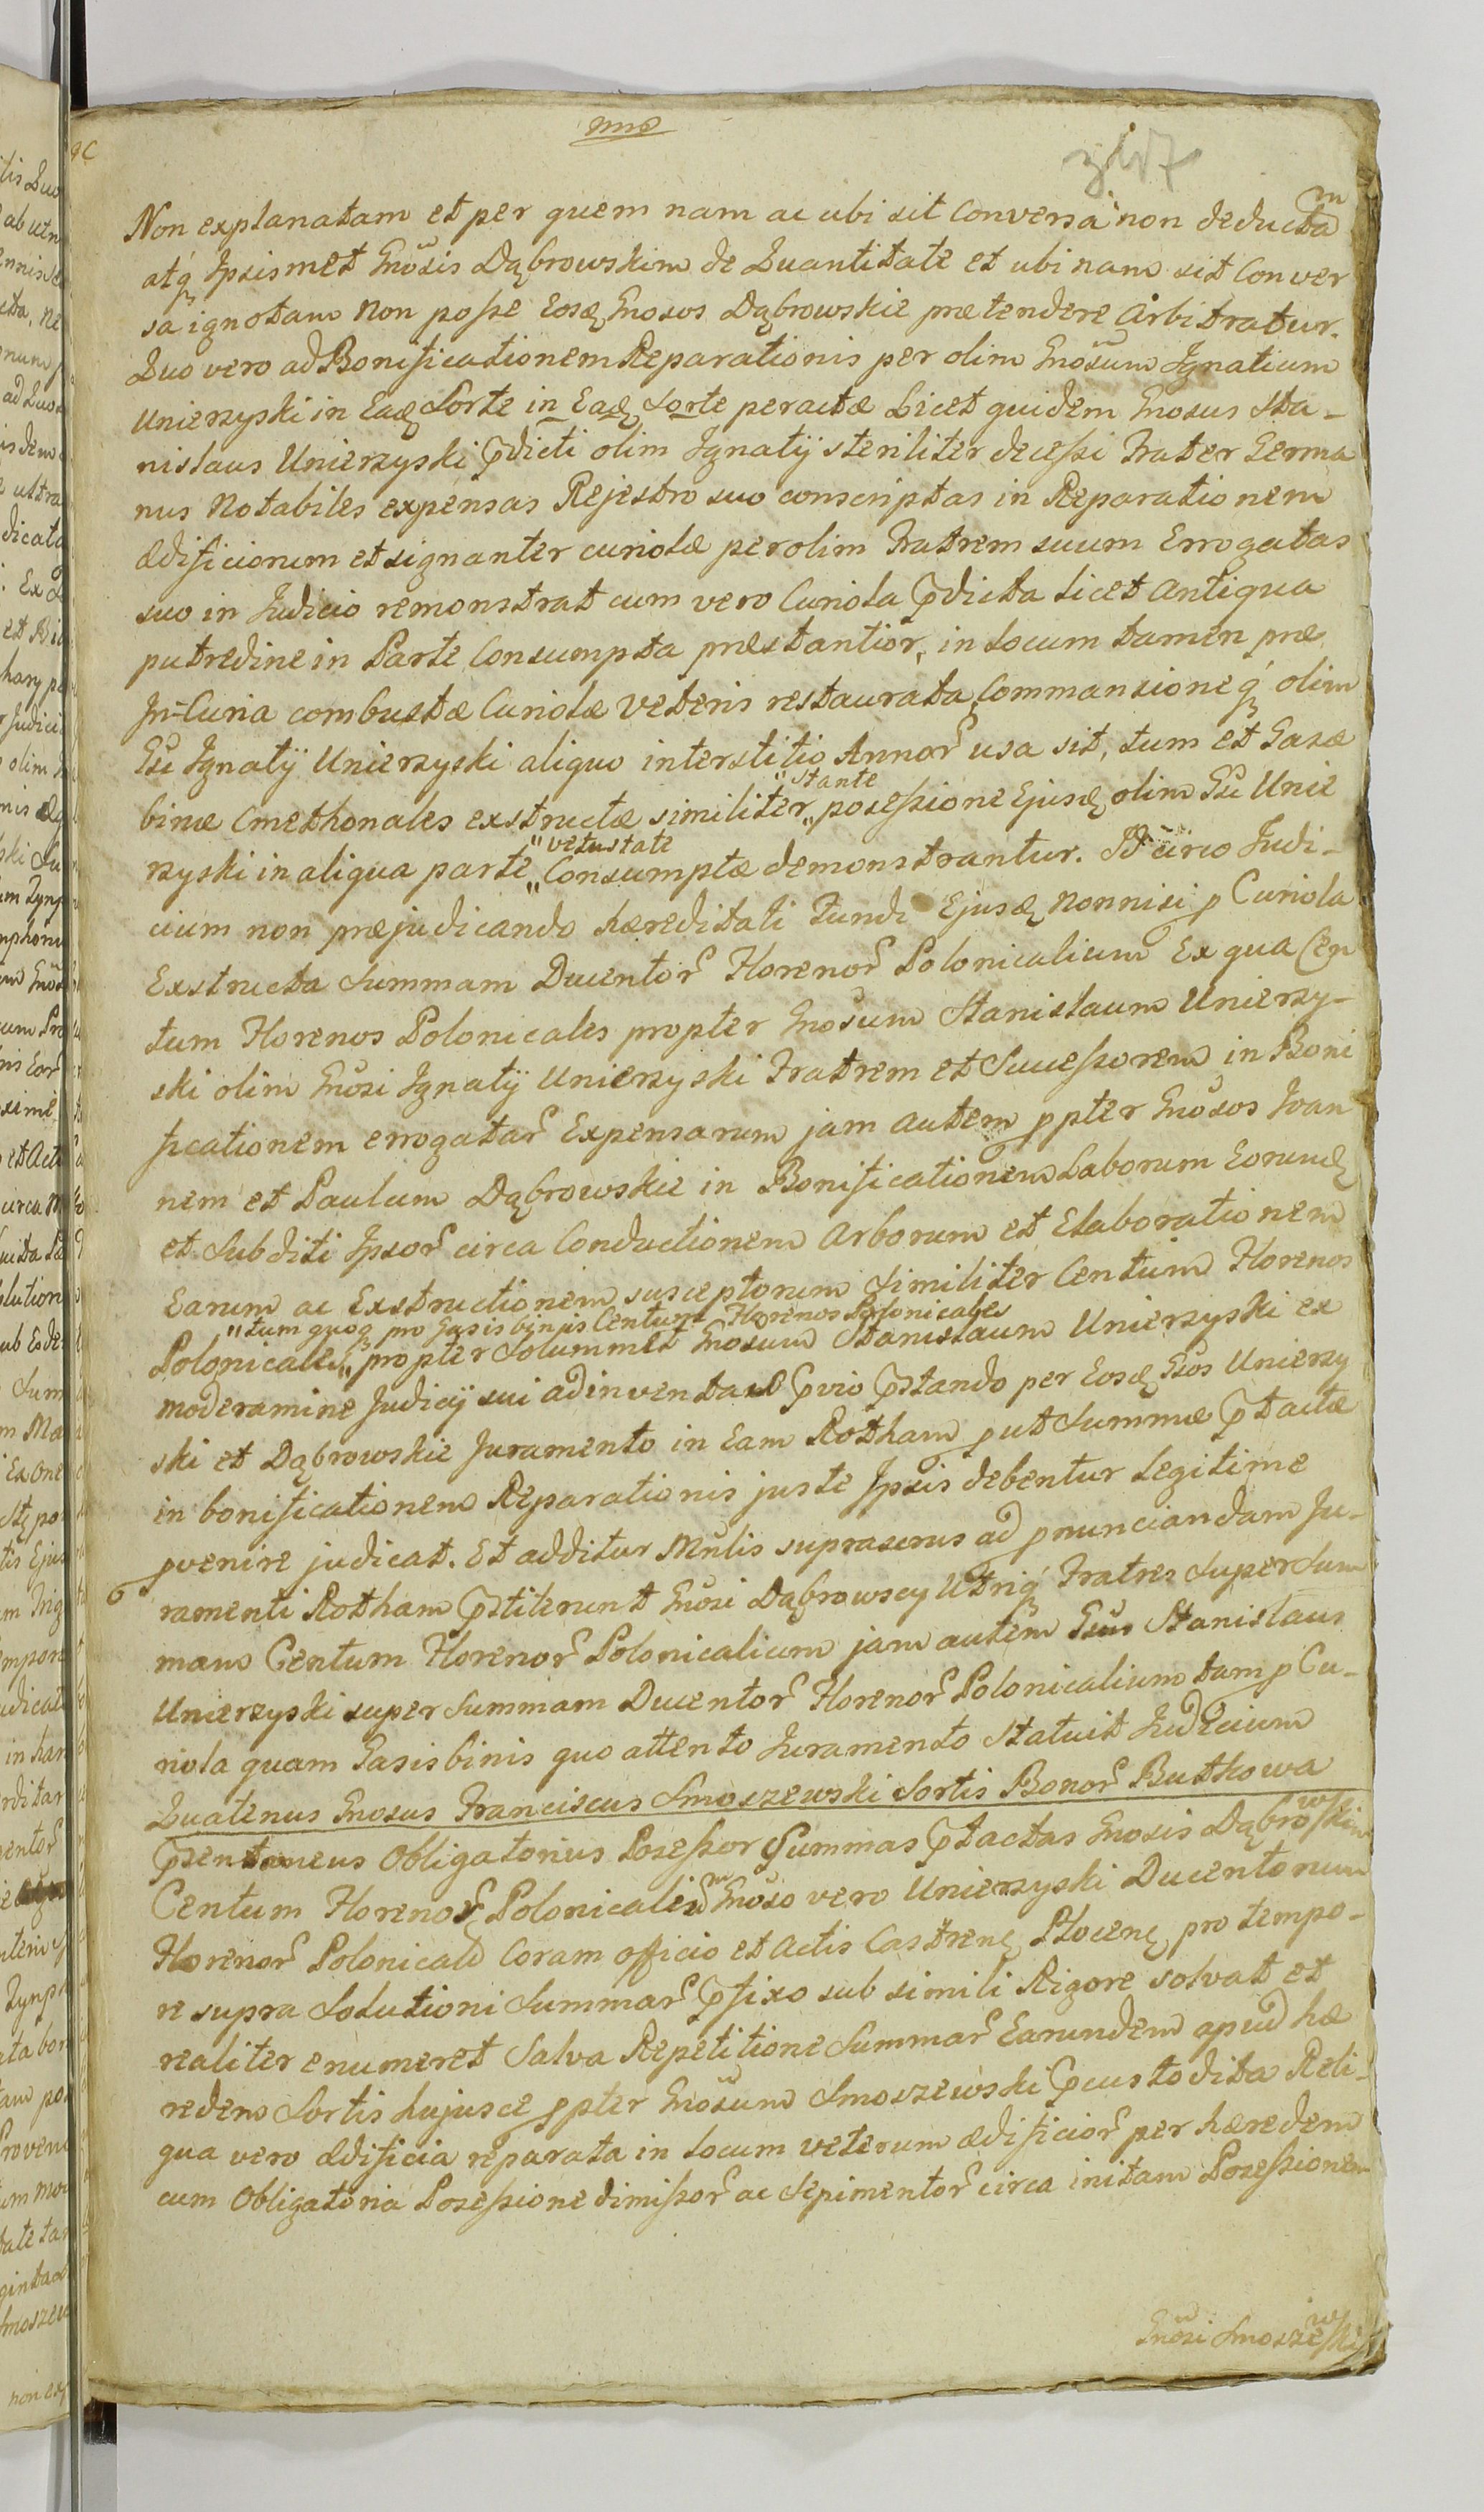 Non explanatam et per quem nam ac ubi sit Conversa non deductam
atq Ipsismet Gnosis Dąbrowskim de Quantitate et ubi nam sit Conver
sa ignotam Non posse Eosq Gnosos Dąbrowskie prætendere Arbitratur.
Quo vero ad Bonificationem Reparationis per olim Gnosum Ignatium
Unierzyski in Eadq Sorte in Eadq Sorte peractæ Licet quidem Gnosus Sta-
nislaus Unierzyski pdicti olim Ignatij steriliter decessi Frater Germa
nus Notabiles expensas Rejestro suo conscriptas in Reparationem
Ædificiorum et signanter curiolæ per olim Fratrem suum Errogatas
suo in Judicio remonstrat cum vero Curiola pdicta licet Antiqua
putredine in Parte Consumpta præstantior, in Locum tamen præ
In-Curia combustæ Curiolæ Veteris restaurata, Commansioneq olim
Gsi Ignatij Unierzyski aliquo interstitio Annor usa sit, tum et Gasæ
binæ Cmethonales exstructæ similiter "stante" posessione Ejusq olim Gsi Unie
rzyski in aliqua parte "vetustate" Consumptæ demonstrantur. Id circo Judi-
cium non præjudicando hæreditati Fundi Ejusq nonnisi p Curiola
Exstructa Summam Ducentor Florenor Polonicalium Ex qua Cen
tum Florenos Polonicales propter Gnosum Stanislaum Unierzy-
ski olim Gnosi Ignatij Unierzyski Fratrem et Successorem in Boni
ficationem errogatar Expensarum jam autem ppter Gnosos Ioan
nem et Paulum Dąbrowskie in Bonificationem Laborum Eorundq
et Subditi Ipsor circa Conductionem Arborum et Elaborationem
Earum ac Exstructionem susceptorum Similiter Centum Florenos
"tum quoq pro Gasis binis Centum Florenos Polonicales
Polonicales" propter Solummet Gnosum Stanislaum Unierzyski ex
moderamine Judicij sui adinventas pvio pstando per Eosq Gsos Unierzy
ski et Dąbrowskie Juramento in Eam Rotham put Summæ ptactæ
in bonificationem Reparationis juste Ipsis debentur Legitime
pvenire judicat. Et additur Mnlis suprascrus ad pnunciandam Ju-
ramenti Rotham pstiterunt Gnosi Dąbrowscy Utriq Fratres Super Sum
mam Centum Florenor Polonicalium jam autem Gsus Stanislaus
Unierzyski super Summam Ducentor Florenor Polonicalium tam p Cu-
riola quam Gasis binis quo attento Juramento Statuit Judicium
Quatenus Gnosus Franciscus Smoszewski Sortis Bonor Butkowa
psentaneus Obligatorius Posessor Summas ptactas Gnosis Dąbrowskim
Centum Florenor Polonicalium Gnoso vero Unierzyski Ducentorum
Florenor Polonical Coram officio et Actis Castrenq Plocenq pro tempo-
re supra Solutioni Summar pfixo sub simili Rigore solvat et
realiter enumeret Salva Repetitione Summar Earundem apud hæ
redem Sortis hujusce ppter Gnosum Smoszewski pcustodita Reli-
qua vero Ædificia reparata in Locum veterum ædificior per hæredem
cum Obligatoria Posessione dimissor ac Sepimentor circa initam Posessionem
Gnosi Smoszewski